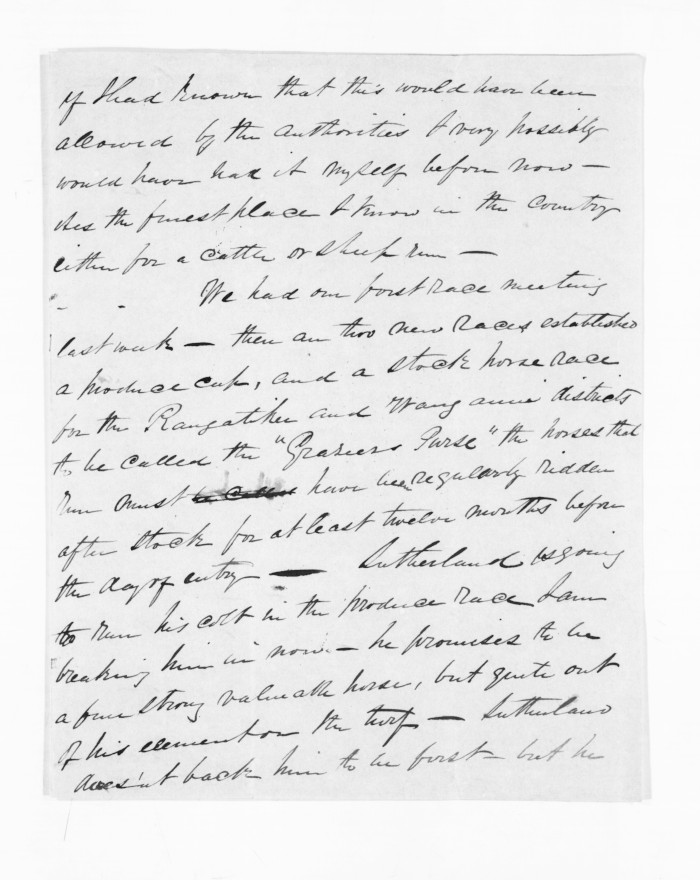 if I had known that this would have been
allowed by the authorities & very possibly
would have had it myself before now —
its the finest place I know in the country
either for a cattle or sheep run —
We had our first race meeting
last week — then an two new races established
a produce cup, and a stock horse race
for the Rangatikei and Wanganui districts
to be called the "Graziers Purse" the horses that
run must have been regularly ridden
after stock for at least twelve months before
the day of entry — Sutherland is going
to run his colt in the produce race I am
breaking him in now — he promises to be
a fine strong valuable horse, but quite out
of his element on the turf — Sutherland
does'nt back him to be first — but he